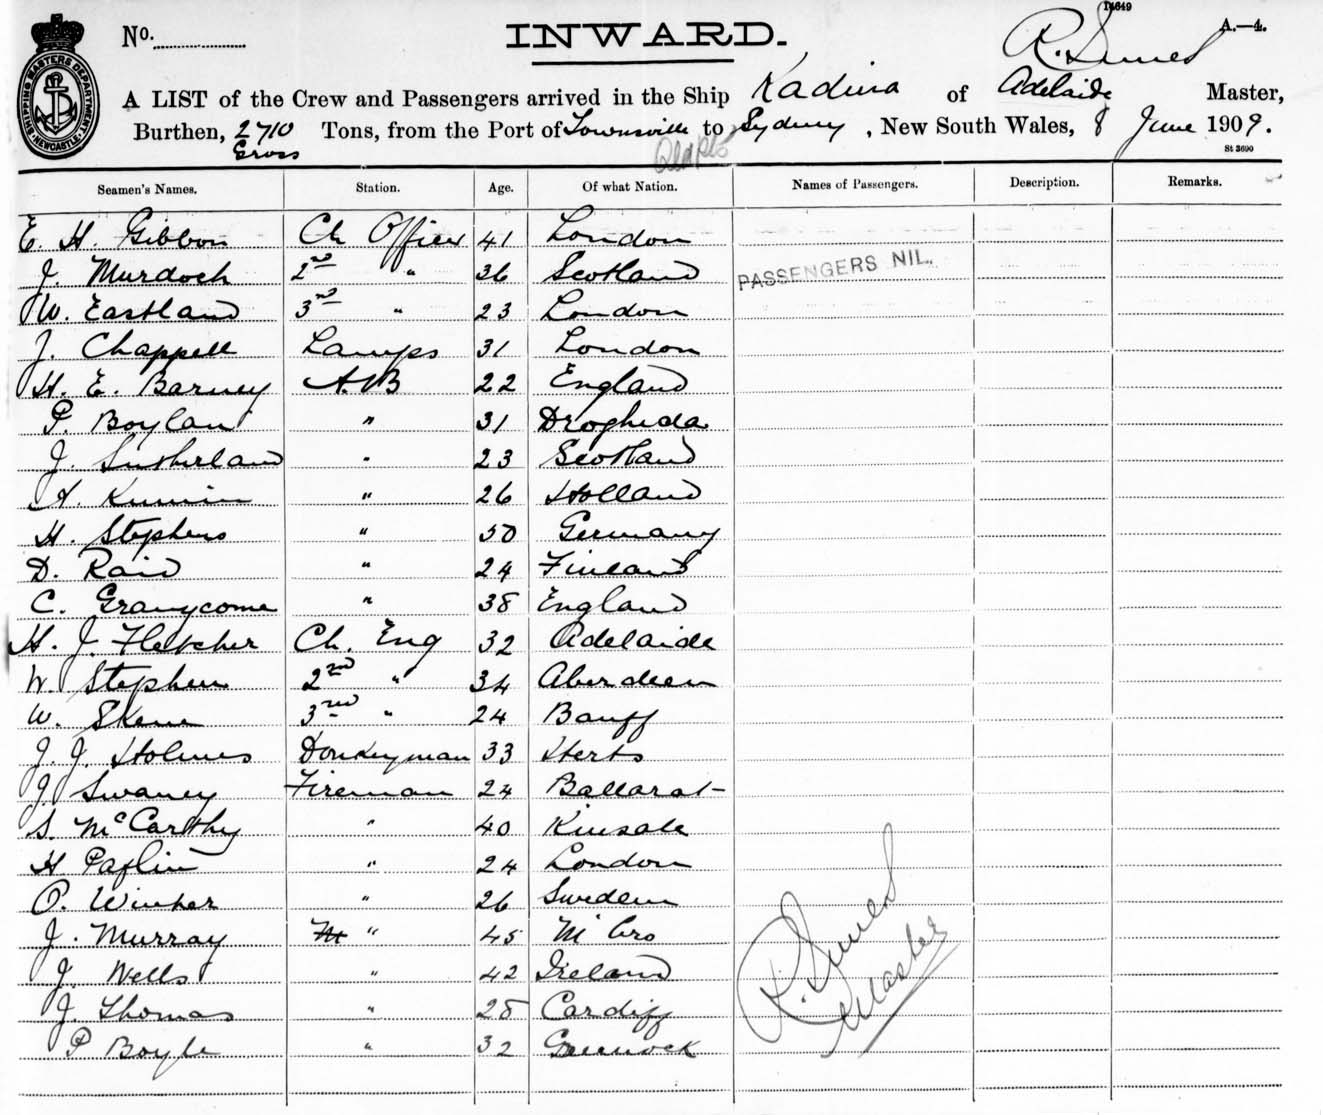 14649
A.—4.
No.
INWARD.
R. Sunes
SHIPPING MASTERS DEPARTMENT NEWCASTLE
A LIST of the Crew and Passengers arrived in the Ship Kadina of Adelaide Master,
Burthen, 2710 Tons, from the Port of Townsville to Sydney, New South Wales, 8 June 1909.
Gross
St 3690
Seamen's Names. Station. Age. Of what Nation. Names of Passengers. Description. Remarks.
E. H. Gibbon Ch Officer 41 London
J. Murdoch 2nd " 36 Scotland PASSENGERS NIL.
W. Eastland 3rd " 23 London
J. Chappell Lamps 31 London
H. E. Barney A.B 22 England
P. Boylan " 31 Drogheda
J. Sutherland " 23 Scotland
A. " 26 Holland
H. Stephens " 50 Germany
D. Raid " 24 Finland
C. Granycome " 38 England
H. J. Fletcher Ch. Eng 32 Adelaide
W. Stephen 2nd " 34 Aberdeen
W. Skene 3rd " 24 Banff
J. J. Holmes Donkeyman 33 Herts
J Swaney Fireman 24 Ballarat
S. McCarthy " 40 Kinsale
H Paflin " 24 London
O. Winher " 26 Sweden
J. Murray " 45
J. Wells " 42 Ireland
J. Thomas " 28 Cardiff
P Boyle " 32 Greenock
R. Sunes
Master